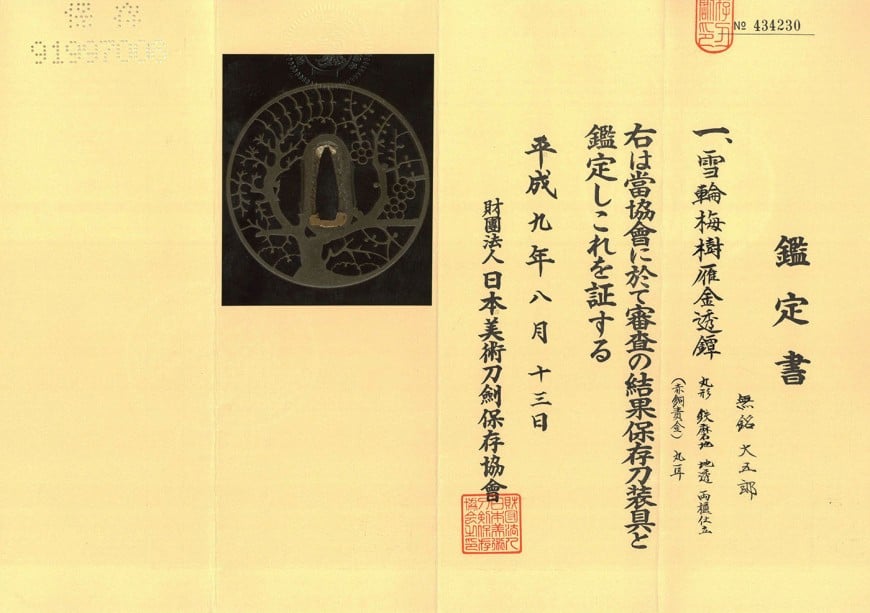 鑑定書
№ 434230
一、雪輪梅樹雁金透鐔
無銘 大五郎
丸形 鉄磨地 地透 両櫃仕立
(赤銅責金) 丸耳
右は當協會に於て審査の結果保存刀装具と
鑑定しこれを証する
平成九年八月十三日
財團法人 日本美術刀劍保存協會
保存